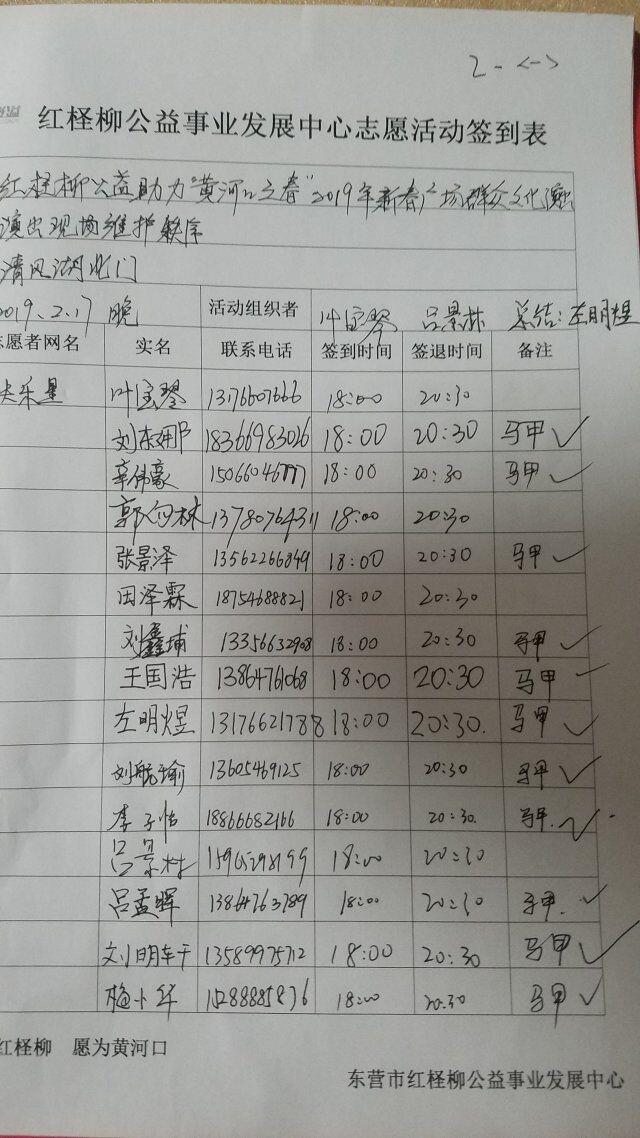 2-<->
红柽柳公益事业发展中心志愿活动签到表
红柽柳公益助力"黄河口之春"2019年新春广场群众文化
演出现场维护秩序
清风湖北门
2019.2.17 晚 活动组织者 叶宝琴 吕景林 总结:左明煜
志愿者网名 实名 联系电话 签到时间 签退时间 备注
叶宝琴 13176607666 18:00 20:30
18366983026 18:00 20:30 马甲 ✓
辛伟豪 18:00 20:30 马甲 ✓
郭向林 13780764311 18:00 20:30
张景泽 13562266849 18:00 20:30 马甲 ✓
田泽霖 18754688821 18:00 20:30
刘鑫埔 13356632908 18:00 20:30 马甲 ✓
王国浩 13864761068 18:00 20:30 马甲 ✓
左明煜 13176621788 18:00 20:30. 马甲 ✓
刘航瑜 13605469125 18:00 20:30 马甲 ✓
李子怡 18866682166 18:00 20:30. 马甲. ✓
吕景林 18:00 20:30
吕孟晖 13864763789 18:00 20:30 马甲. ✓
13589975712 18:00 20:30 马甲 ✓
梅小华 15288885876 18:00 20:30 马甲 ✓
红柽柳 愿为黄河口
东营市红柽柳公益事业发展中心